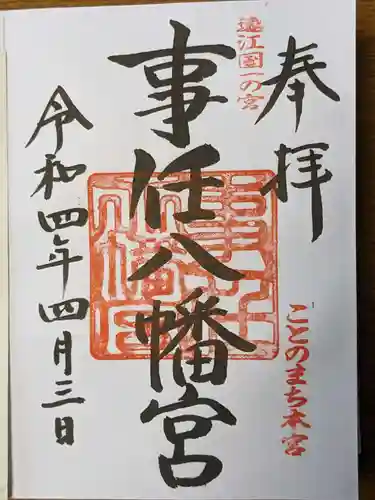 奉拝
遠江国一の宮
ことのまち本宮
事任八幡宮
令和四年四月三日